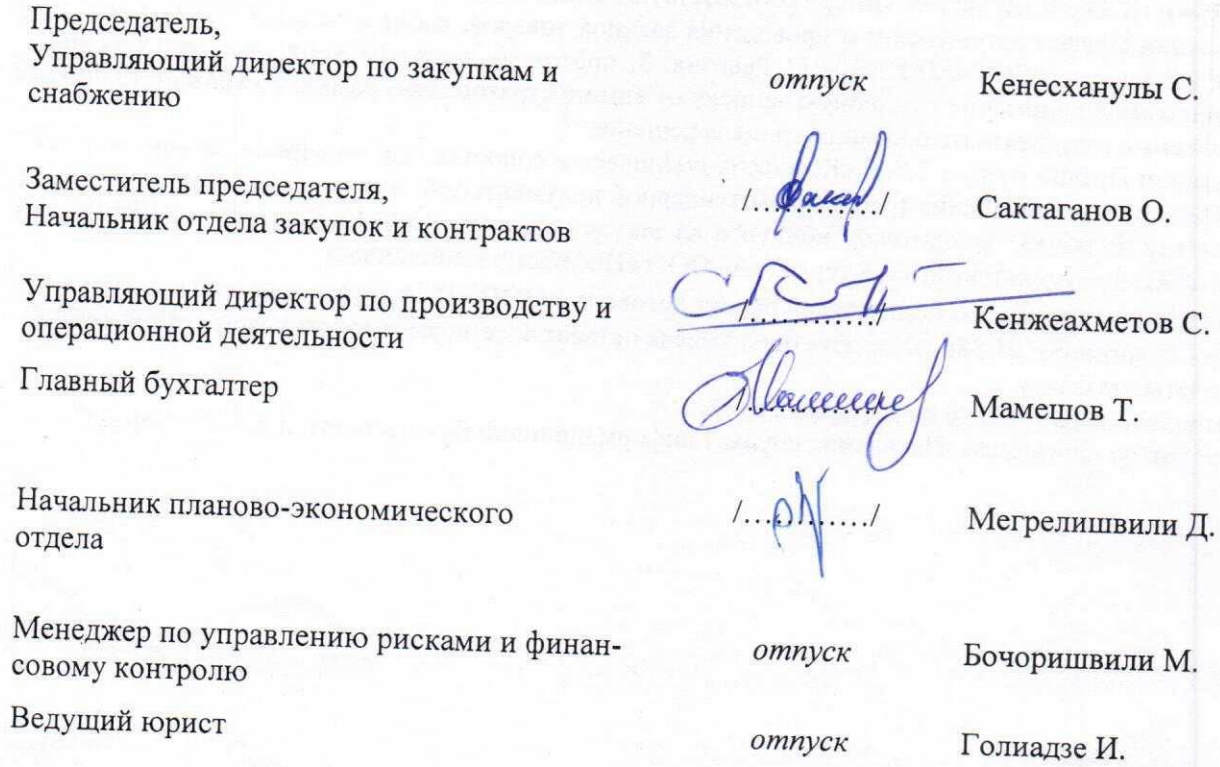 Председатель,
Управляющий директор по закупкам и
снабжению
отпуск
Кенесханулы С.
Заместитель председателя,
Начальник отдела закупок и контрактов
/............/
Сактаганов О.
Управляющий директор по производству и
операционной деятельности
/............/
Кенжеахметов С.
Главный бухгалтер
/............/
Мамешов Т.
Начальник планово-экономического
отдела
/............/
Мегрелишвили Д.
Менеджер по управлению рисками и финан-
совому контролю
отпуск
Бочоришвили М.
Ведущий юрист
отпуск
Голиадзе И.